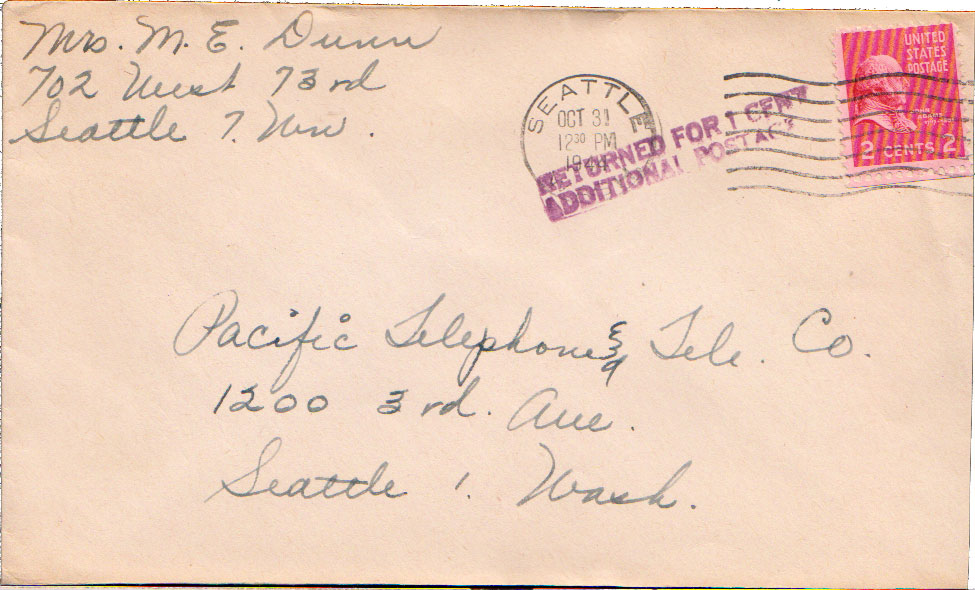 Mrs. M. E. Dunn
702 West 73rd
Seattle 7. Wn.
SEATTLE
OCT 31
12 30 PM
1944
RETURNED FOR 1 CENT
ADDITIONAL POSTAGE
UNITED
STATES
POSTAGE
JOHN
ADAMS
2 CENTS 2
Pacific Telephone & Tele. Co.
1200 3rd. Ave.
Seattle 1. Wash.